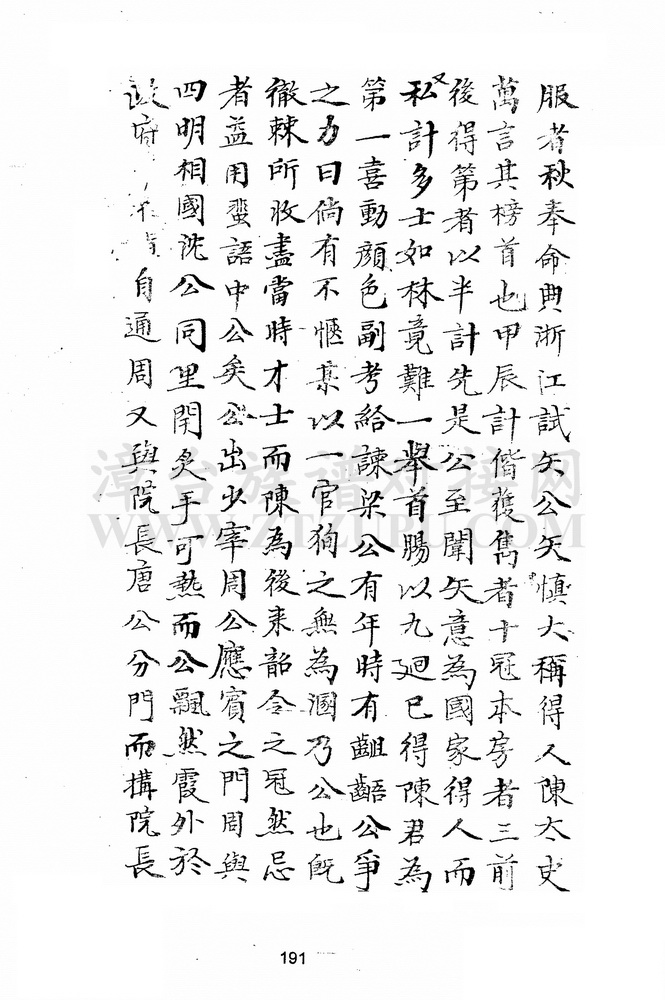 服者秋奉命典浙江試矢公矢慎大稱得人陳太史
萬言其榜首也甲辰計偕獲雋者十冠本房者三前
後得第者以半計先是公至闈矢意為國家得人而
又私計多士如林竟難一舉首腸以九廻已得陳君為
第一喜動顏色副考給諫梁公有年時有齟齬公爭
之力曰倘有不愜某以一官狥之無為溷乃公也既
徹棘所收盡當時才士而陳為後来韶令之冠然忌
者益用蜚語中公矣公出少宰周公應賓之門周與
四明相國沈公同里閈炙手可熱而公飄然霞外於
政府 自通周又與院長唐公分門而搆院長
漳台族谱对接网
WWW.ZTZUPU.COM
191